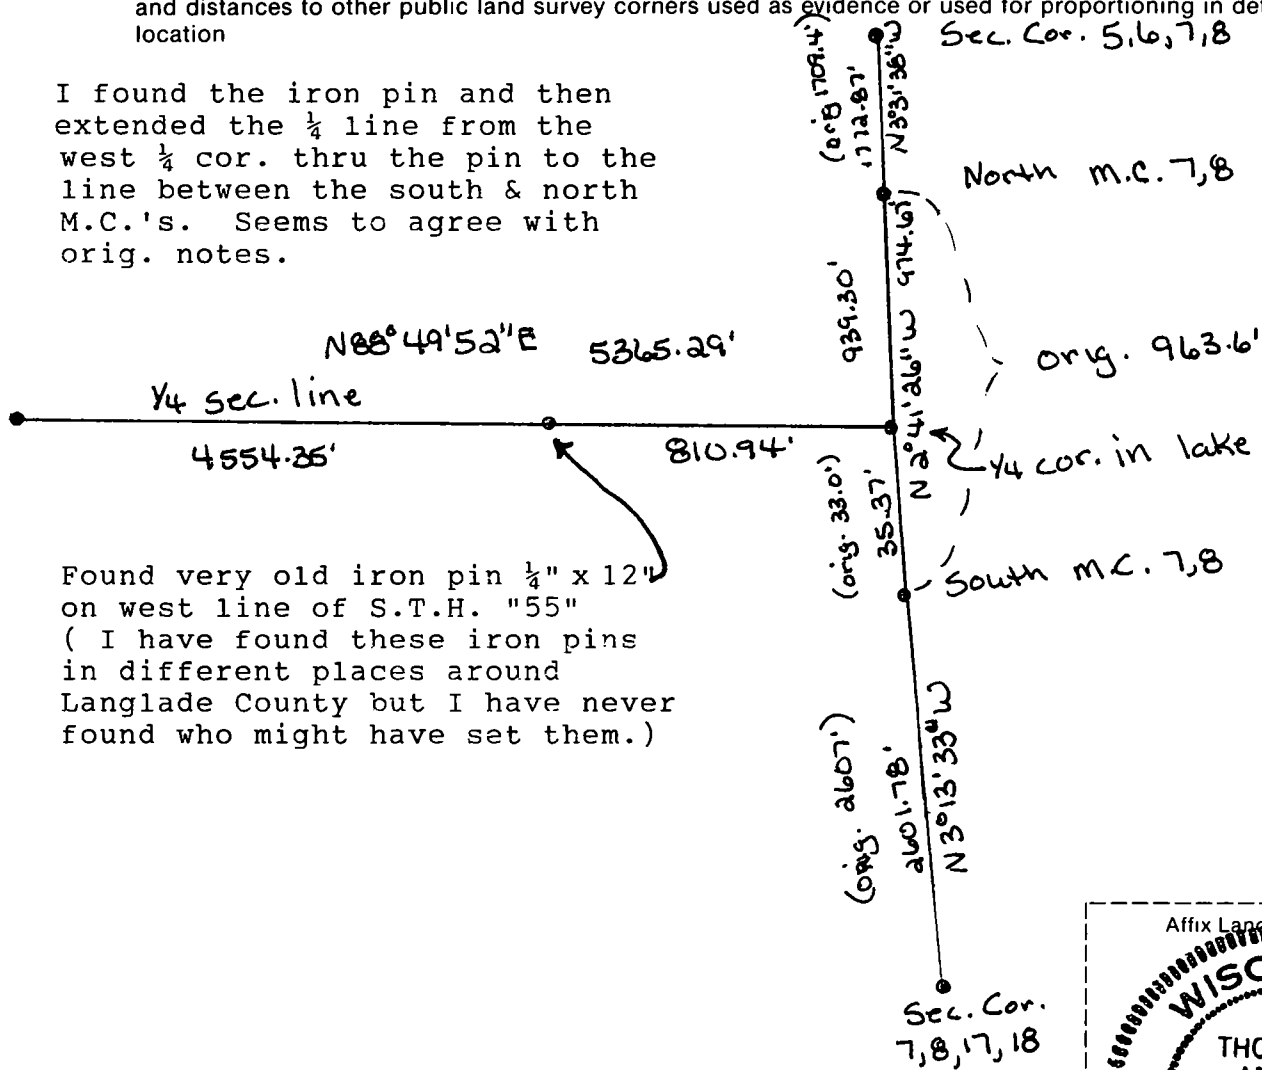 and distances to other public land survey corners used as evidence or used for proportioning in det
location
I found the iron pin and then
extended the ¼ line from the
west ¼ cor. thru the pin to the
line between the south & north
M.C.'s. Seems to agree with
orig. notes.
Sec. Cor. 5,6,7,8
(orig 1709.4')
1772.87'
N3°31'38"W
North M.C. 7,8
974.67'
939.30'
N2°41'26"W
orig. 963.6'
N88°49'52"E 5365.29'
¼ sec. line
4554.35'
810.94'
¼ cor. in lake
(orig. 33.0')
35.37'
South M.C. 7,8
Found very old iron pin ¼" x 12"
on west line of S.T.H. "55"
( I have found these iron pins
in different places around
Langlade County but I have never
found who might have set them.)
(orig. 2607')
2601.78'
N3°13'33"W
Sec. Cor.
7,8,17,18
Affix Lan
WISC
THO